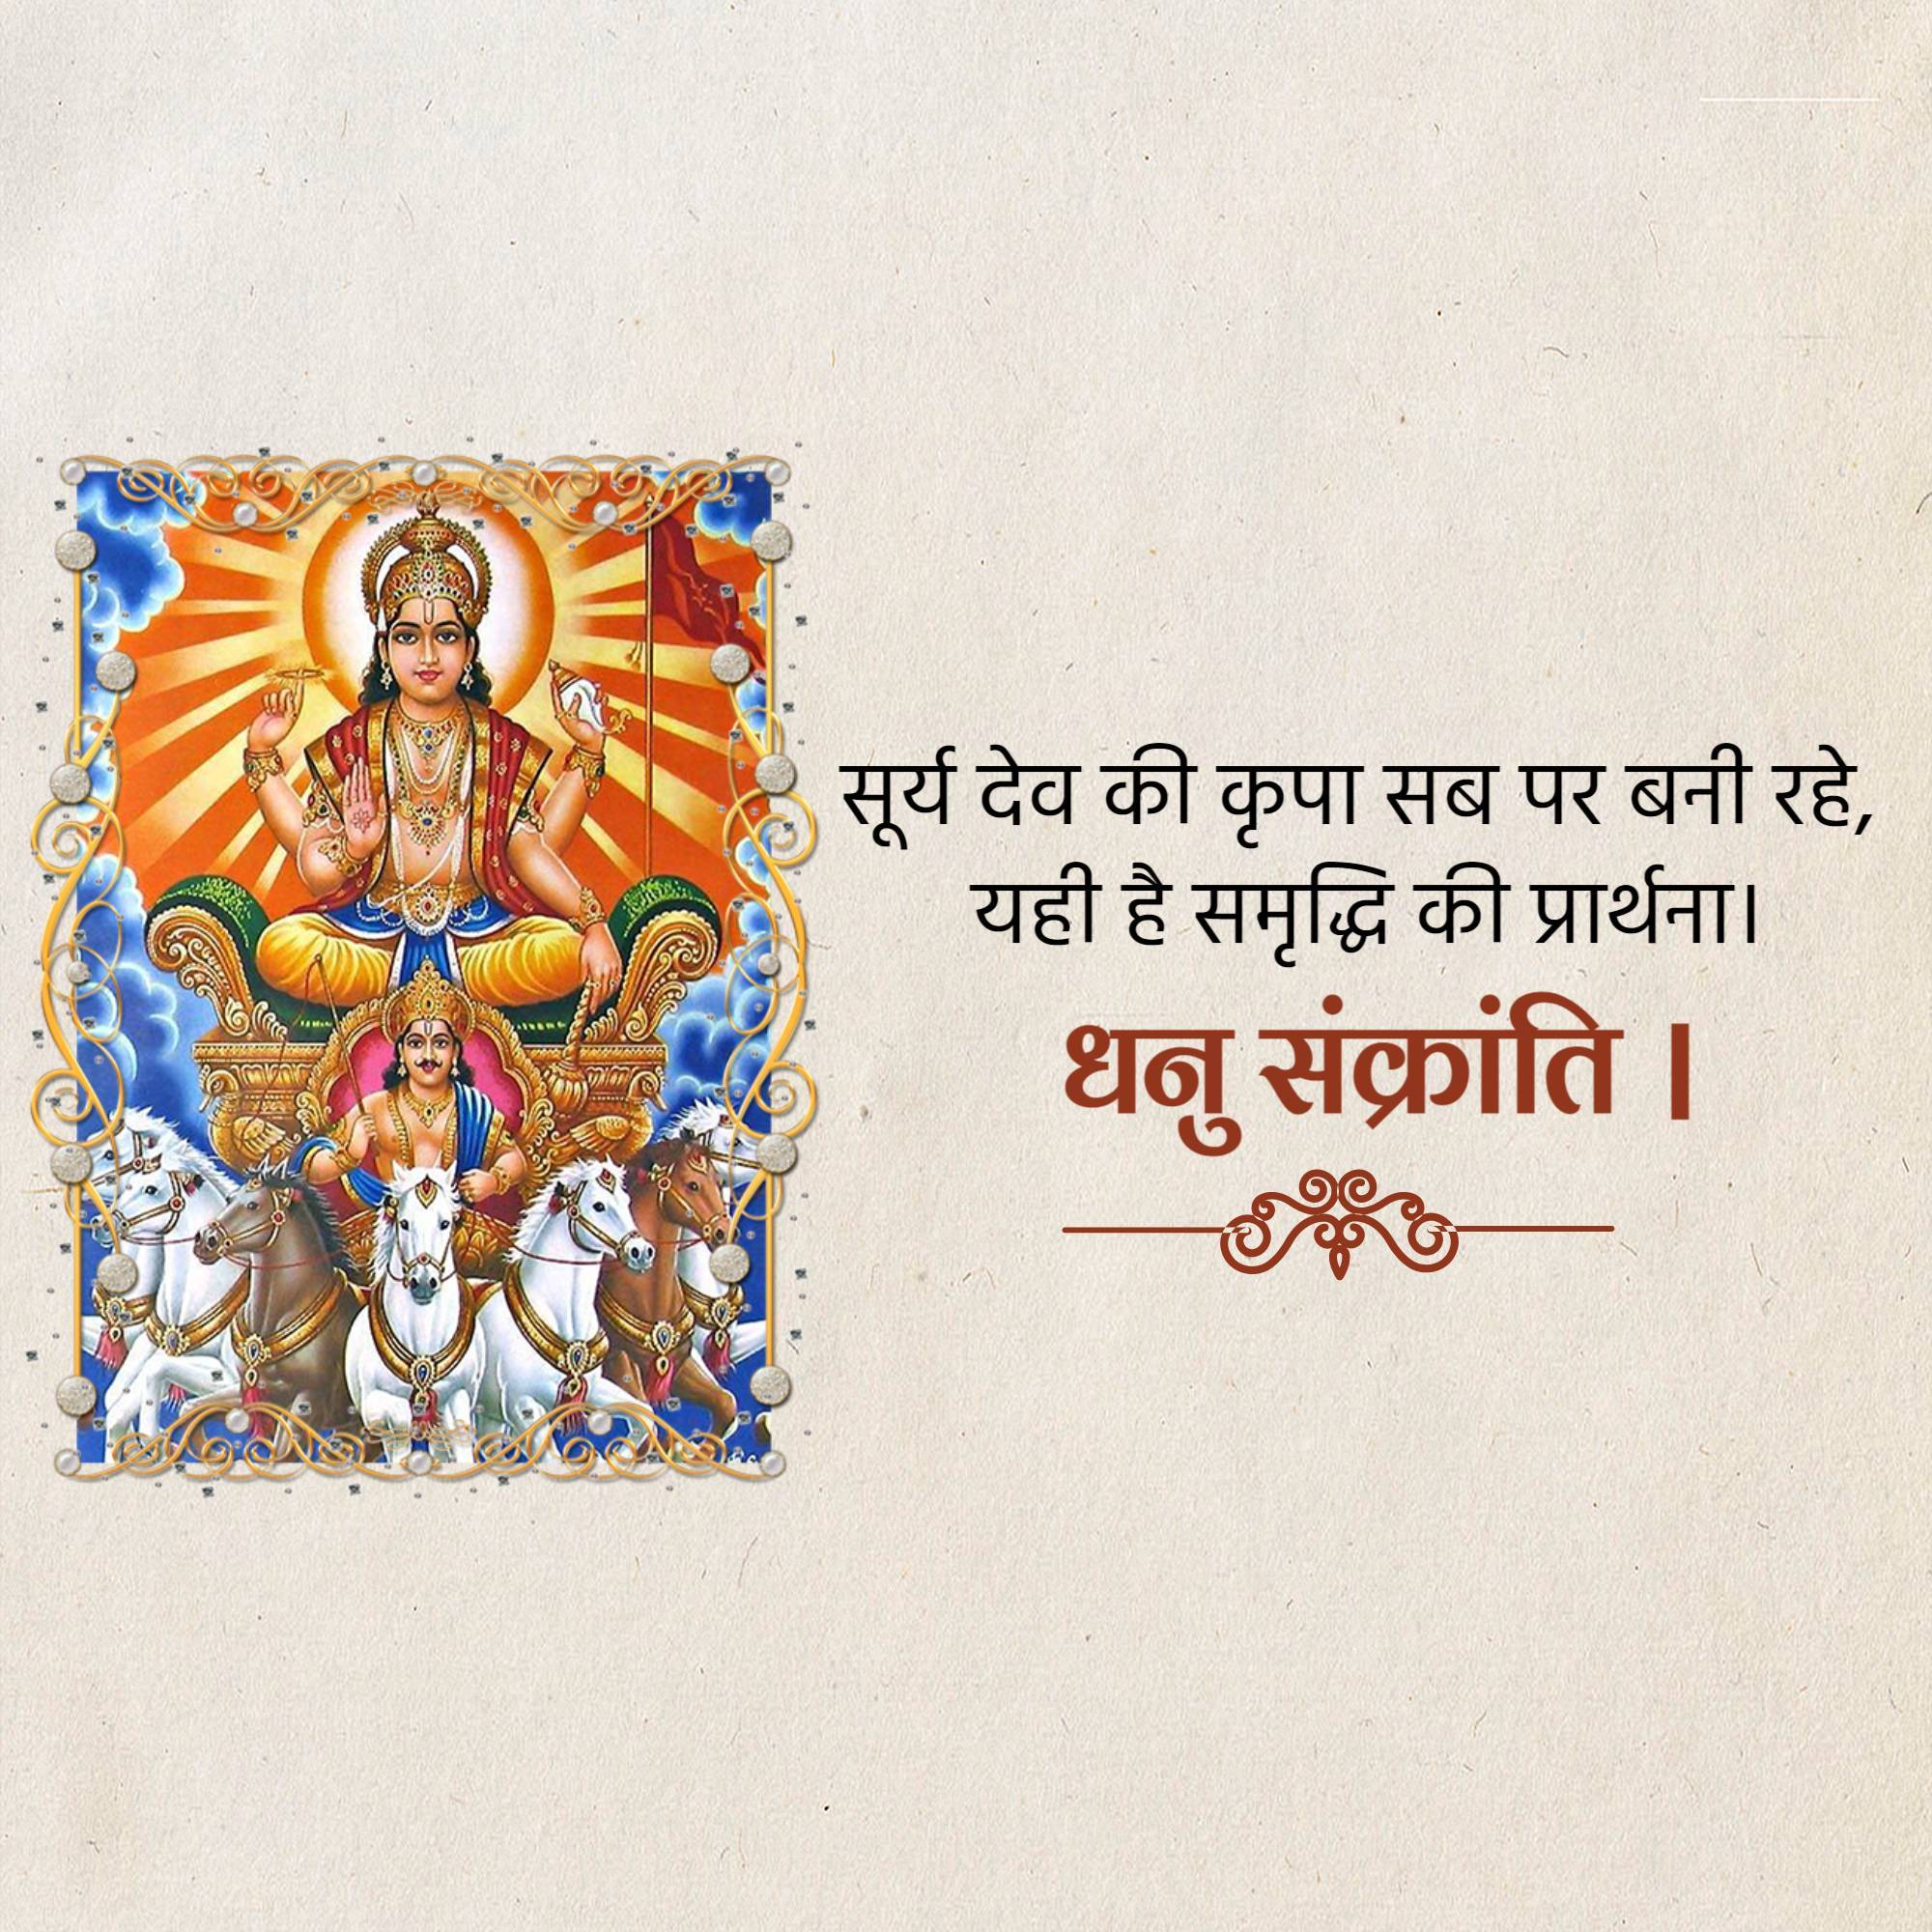 सूर्य देव की कृपा सब पर बनी रहे,
यही है समृद्धि की प्रार्थना।
धनु संक्रांति ।